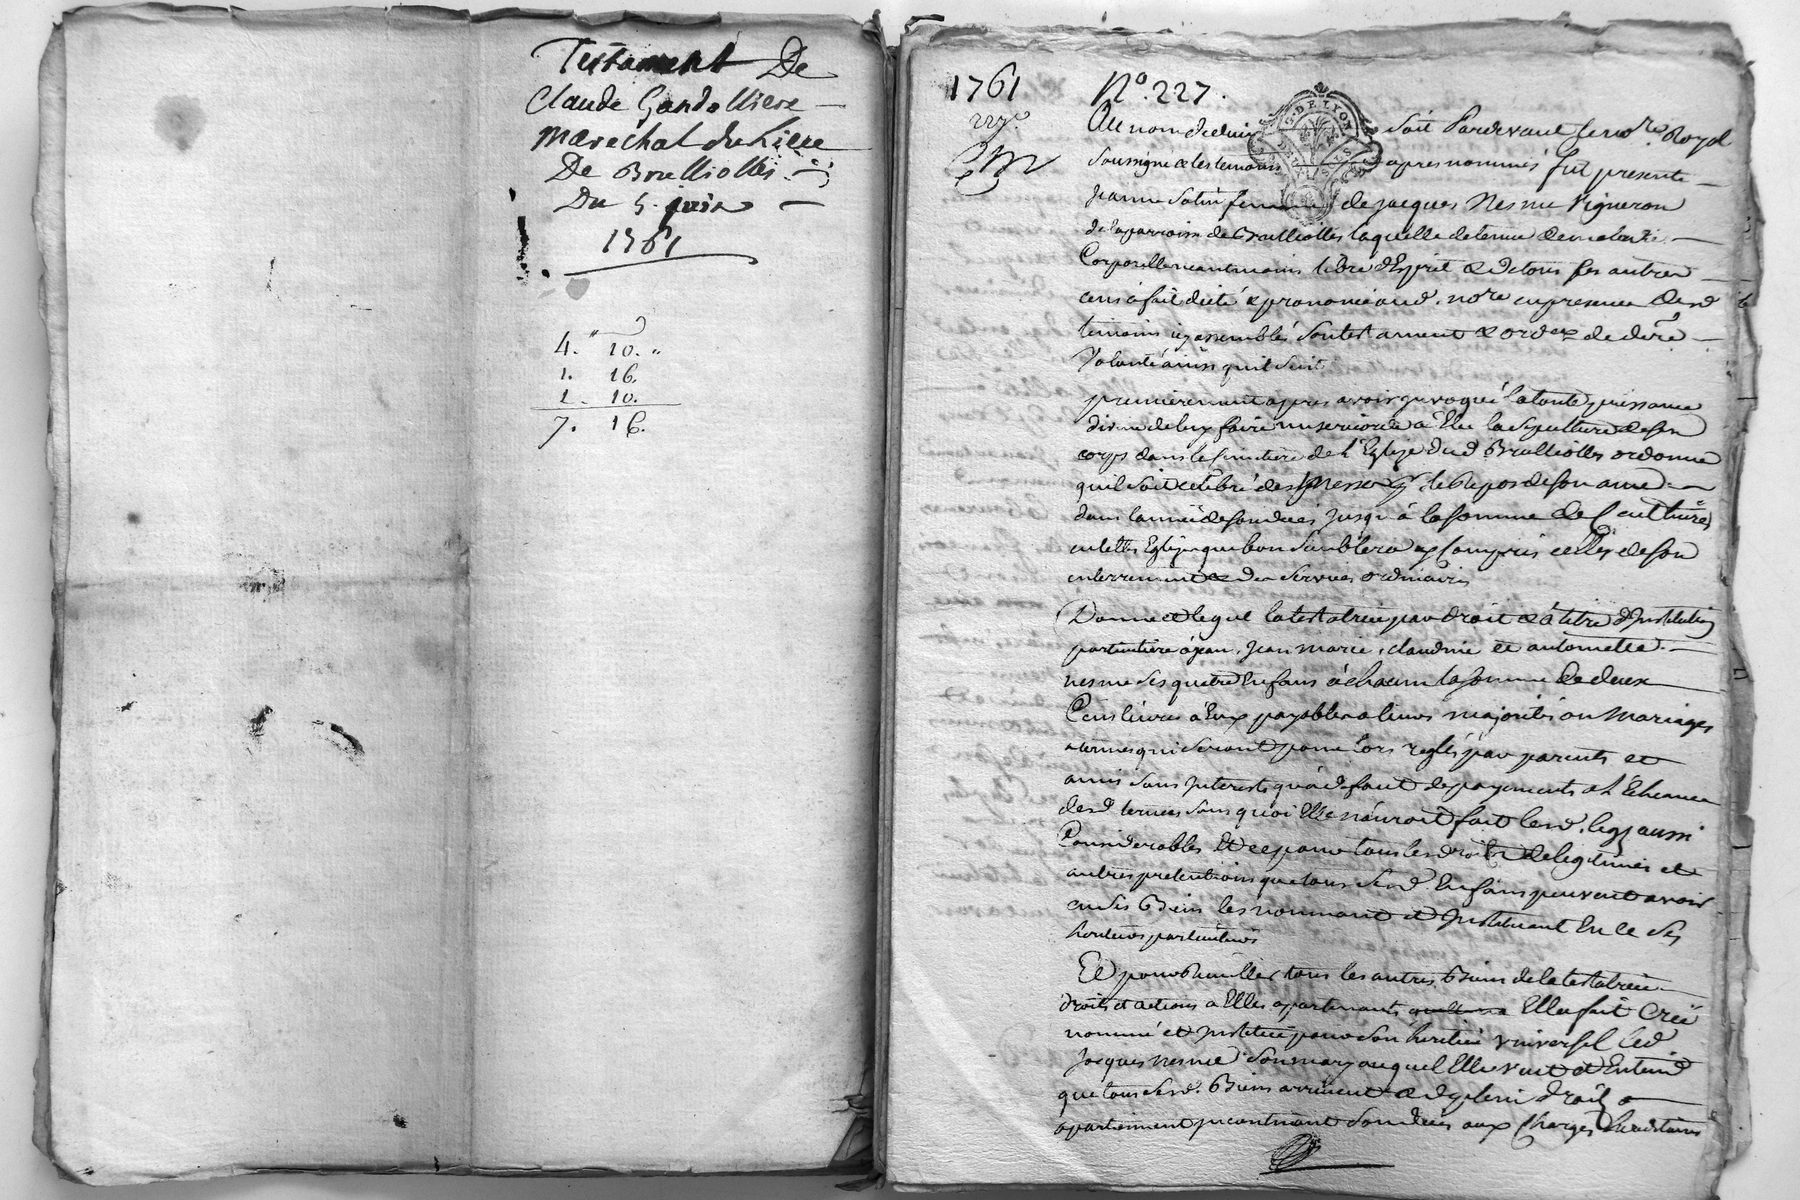 Testament De
Claude Gandolliere
marechal du Lieu
De Brulliolles
Du 5. juin
1761
4. " 10. "
1. 16.
1. 10.
7. 16.
1761 No. 227.
227e
G. DE LYON
Au nom de dieu soit Pardevant le nore. Royal
soussigné & les temoins apres nommés fut presente
jeanne Satin femme de jacques Nesme Vigneron
de la parroisse de Brulliolles laquelle detenue de maladie
Corporelle neantmoins libre d'Esprit & de tous ses autres
cens a fait dicté & prononcé aud. nore en presence desd
temoins icy assemblés son testament & ordce de dere
Volonté ainsy qu'il suit
premierement apres avoir invoqué la toute puissance
divine de luy faire misericorde a Elu la sepulture de son
corps dans le cimetiere de l'Eglize dud Brulliolles ordonne
quil soit celebré des Messes pr le repos de son ame
dans l'année de son deces jusqu'à la somme de
en telles Eglize que bon semblera y compris celles de son
enterrement & des services ordinaires
Donne et legue la testatrice par droit & à titre d'Institution
particuliere à jean, jean marie, claudine et antoinette
nesme ses quatre Enfans à chacun la somme de deux
Cens livres à Eux payables a leurs majorités ou Mariages
a termes qui seront pour lors reglés par parents et
amis sans interests qu'à deffaut de payements a l'Echeance
desd termes sans quoi Elle n'auroit fait lesd. legs aussi
Considerables Et ce pour tous les droits de legitimes et
autres pretentions que tous sesd Enfans peuvent avoir
en ses Biens les nommant et Instituant En ce ses
heritiers particuliers
Et pour tous les autres Biens de la testatrice
droits et actions a Elles apartenants Elle a fait Créé
nommé et Institué pour son heritier universel led
Jacques nesme son mary auquel Elle veut et Entend
que tous sesd. Biens arrivent & de plein droit
apartiennent incontinant son deces aux Charges hereditaires